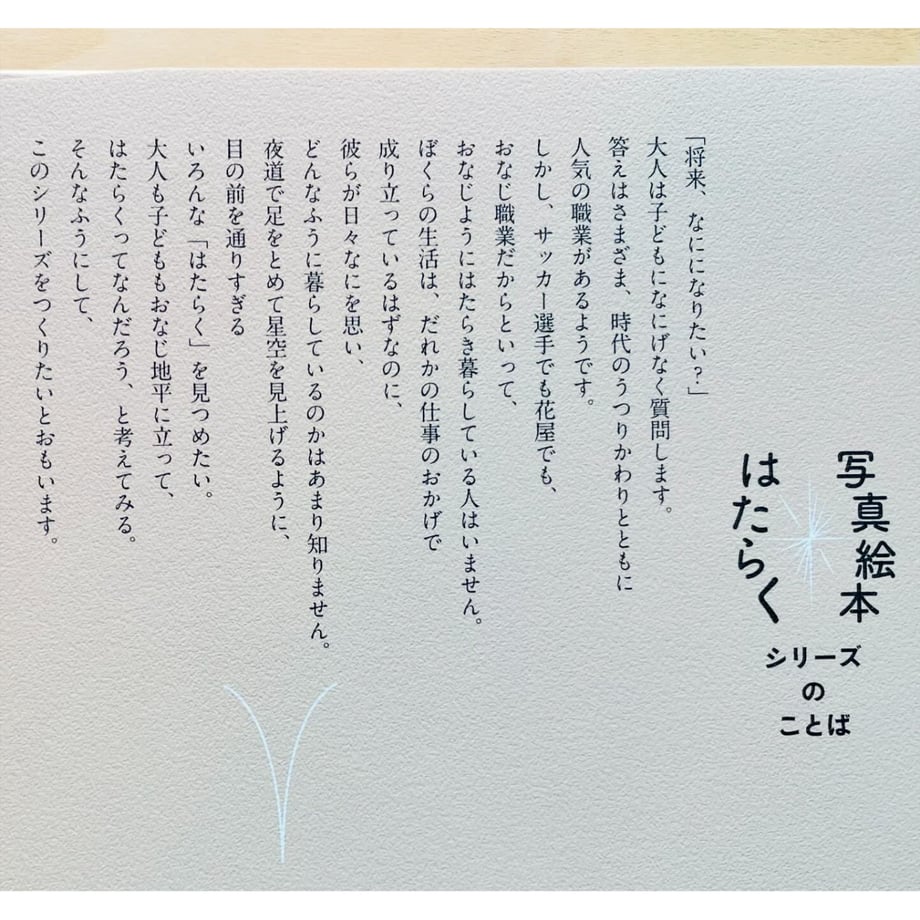 写真絵本
はたらく
シリーズ
の
ことば
「将来、なにになりたい?」
大人は子どもになにげなく質問します。
答えはさまざま、時代のうつりかわりとともに
人気の職業があるようです。
しかし、サッカー選手でも花屋でも、
おなじ職業だからといって、
おなじようにはたらき暮らしている人はいません。
ぼくらの生活は、だれかの仕事のおかげで
成り立っているはずなのに、
彼らが日々なにを思い、
どんなふうに暮らしているのかはあまり知りません。
夜道で足をとめて星空を見上げるように、
目の前を通りすぎる
いろんな「はたらく」を見つめたい。
大人も子どももおなじ地平に立って、
はたらくってなんだろう、と考えてみる。
そんなふうにして、
このシリーズをつくりたいとおもいます。